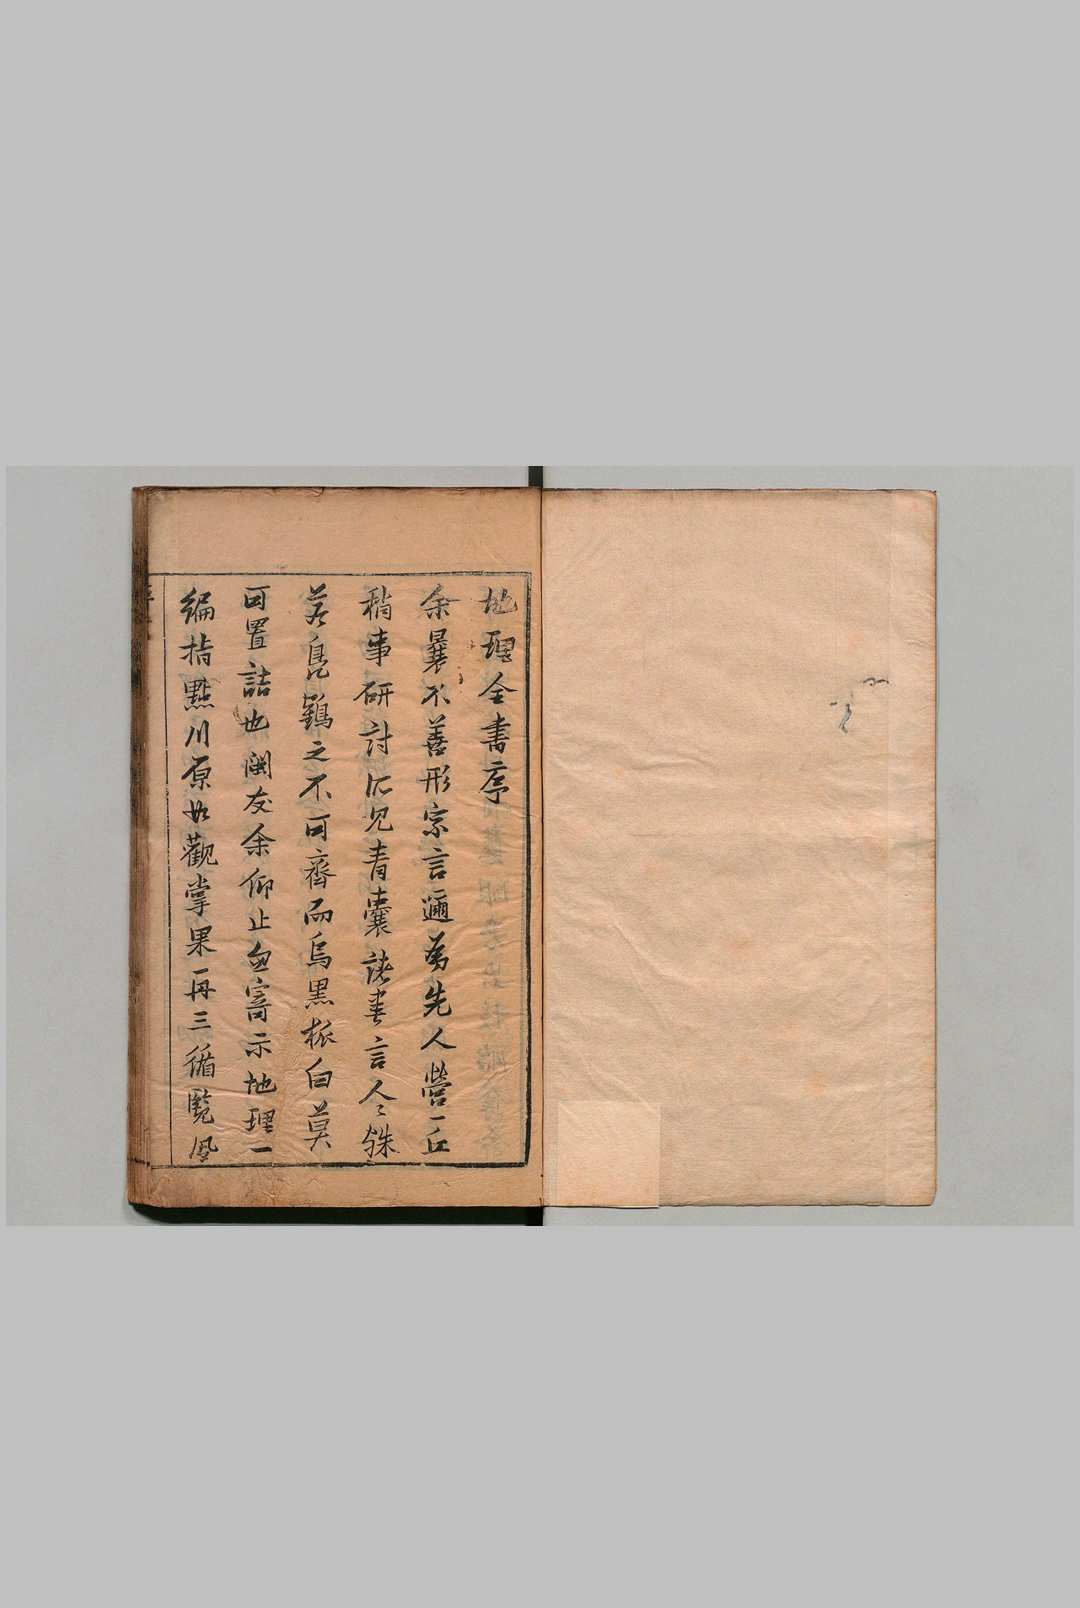 地理全書序
余曩不善形家言邇為先人營一丘
稍事研討所見青囊諸書言人〻殊
若鳧鶴之不可齊而烏黑白莫
可置詰也閩友余仰止寄示地理一
編指點川原如觀掌果再三循覧